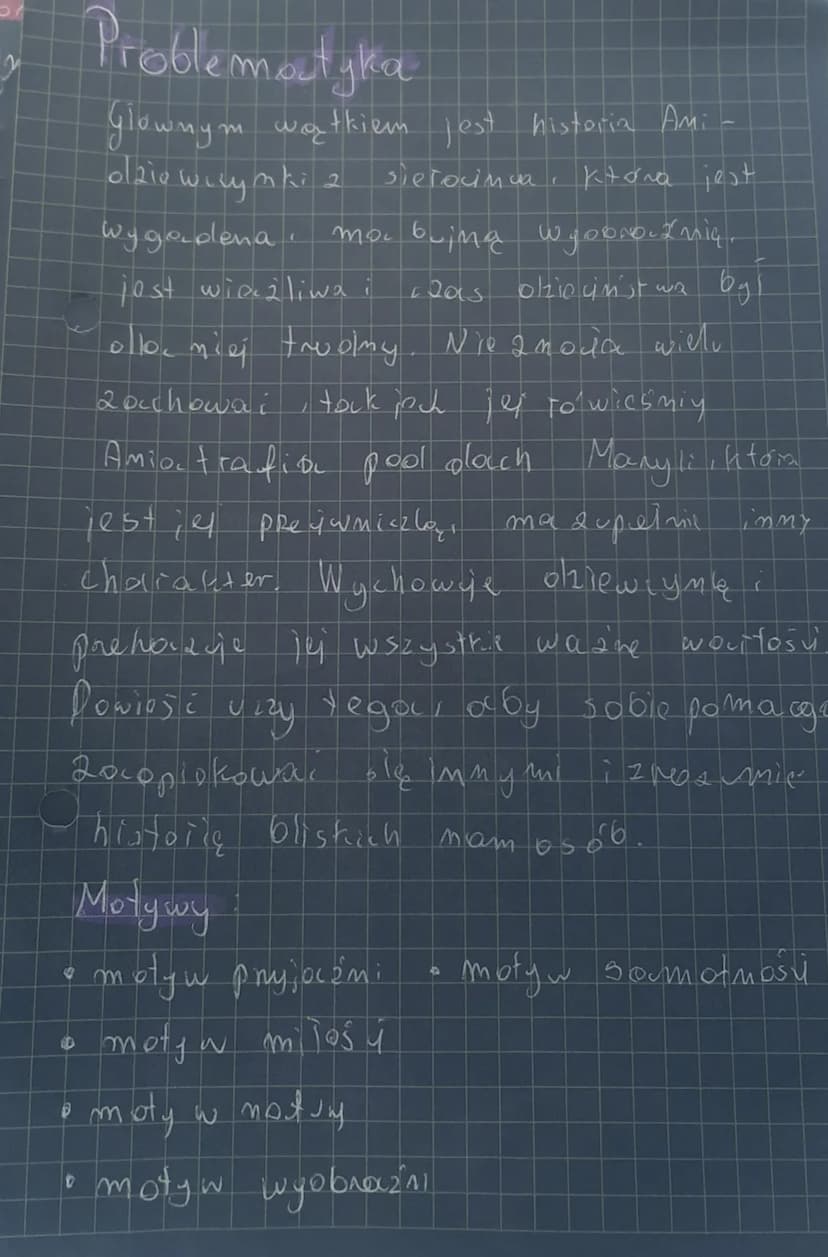 Problematyka
Głównym wątkiem jest historia Ani -
dziewczynki z sierocińca, która jest
wygadana, ma bujną wyobraźnię,
jest wrażliwa i czas dzieciństwa był
dla niej trudny. Nie znała wielu
zachowań, tak jak jej rówieśnicy
Ania trafia pod dach Maryli, która
jest jej przeciwniczką, ma zupełnie inny
charakter. Wychowuje dziewczynkę i
przekazuje jej wszystkie ważne wartości.
Powieść uczy tego, aby sobie pomagać
zaopiekować się innymi i zrozumieć
historię bliskich nam osób.
Motywy:
• motyw przyjaźni • motyw samotności
• motyw miłości
• motyw natury
• motyw wyobraźni